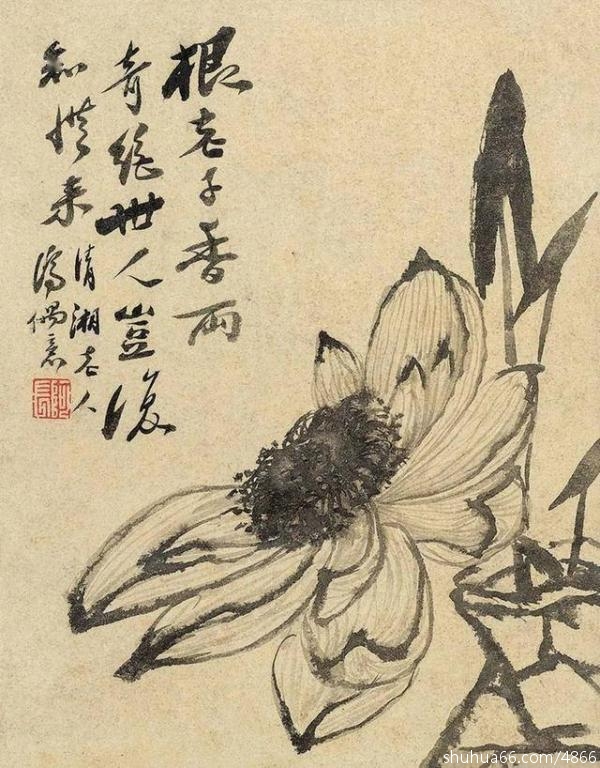 根老子香兩
奇絕世人豈復
知從來
清湘老人
濟偶意
阿長
shuhua66.com/4866